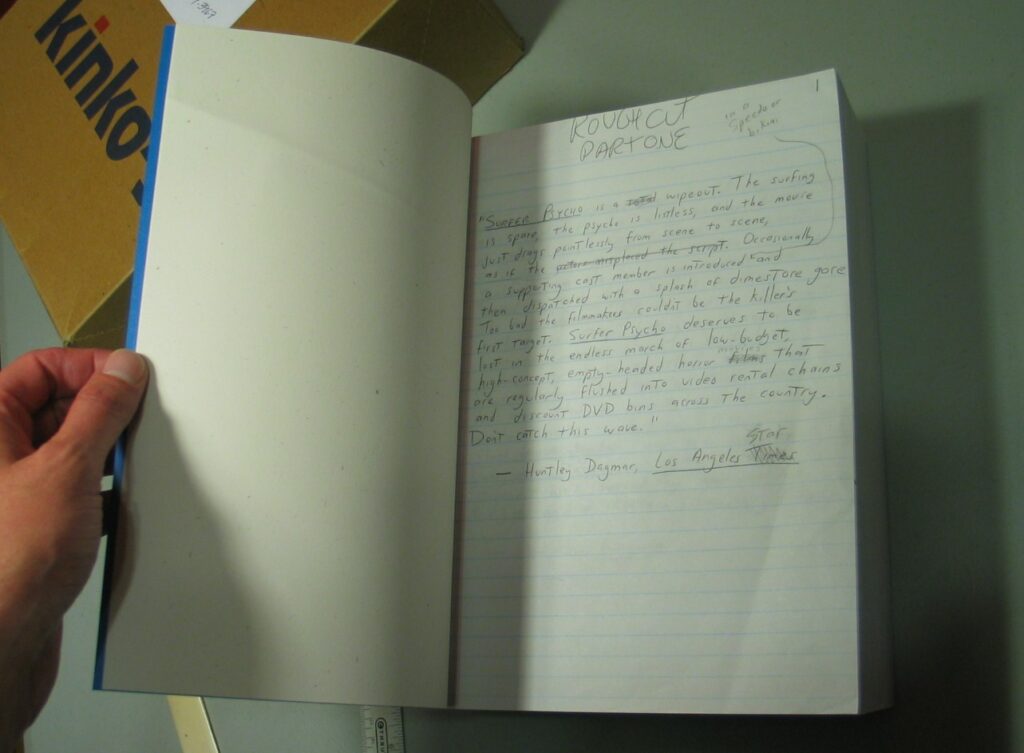 kinko's
1-3967
1
ROUGH CUT
PART ONE
in a
Speedo or
bikini
"SURFER PSYCHO is a wipeout. The surfing
is spare, the psycho is listless, and the movie
just drags pointlessly from scene to scene,
as if the actors misplaced the script. Occasionally
a supporting cast member is introduced and
then dispatched with a splash of dimestore gore
Too bad the filmmakers couldn't be the killer's
first target. Surfer Psycho deserves to be
lost in the endless march of low-budget,
high-concept, empty-headed horror movies films that
are regularly flushed into video rental chains
and discount DVD bins across the country.
Don't catch this wave."
Star
— Huntley Dagmar, Los Angeles Times